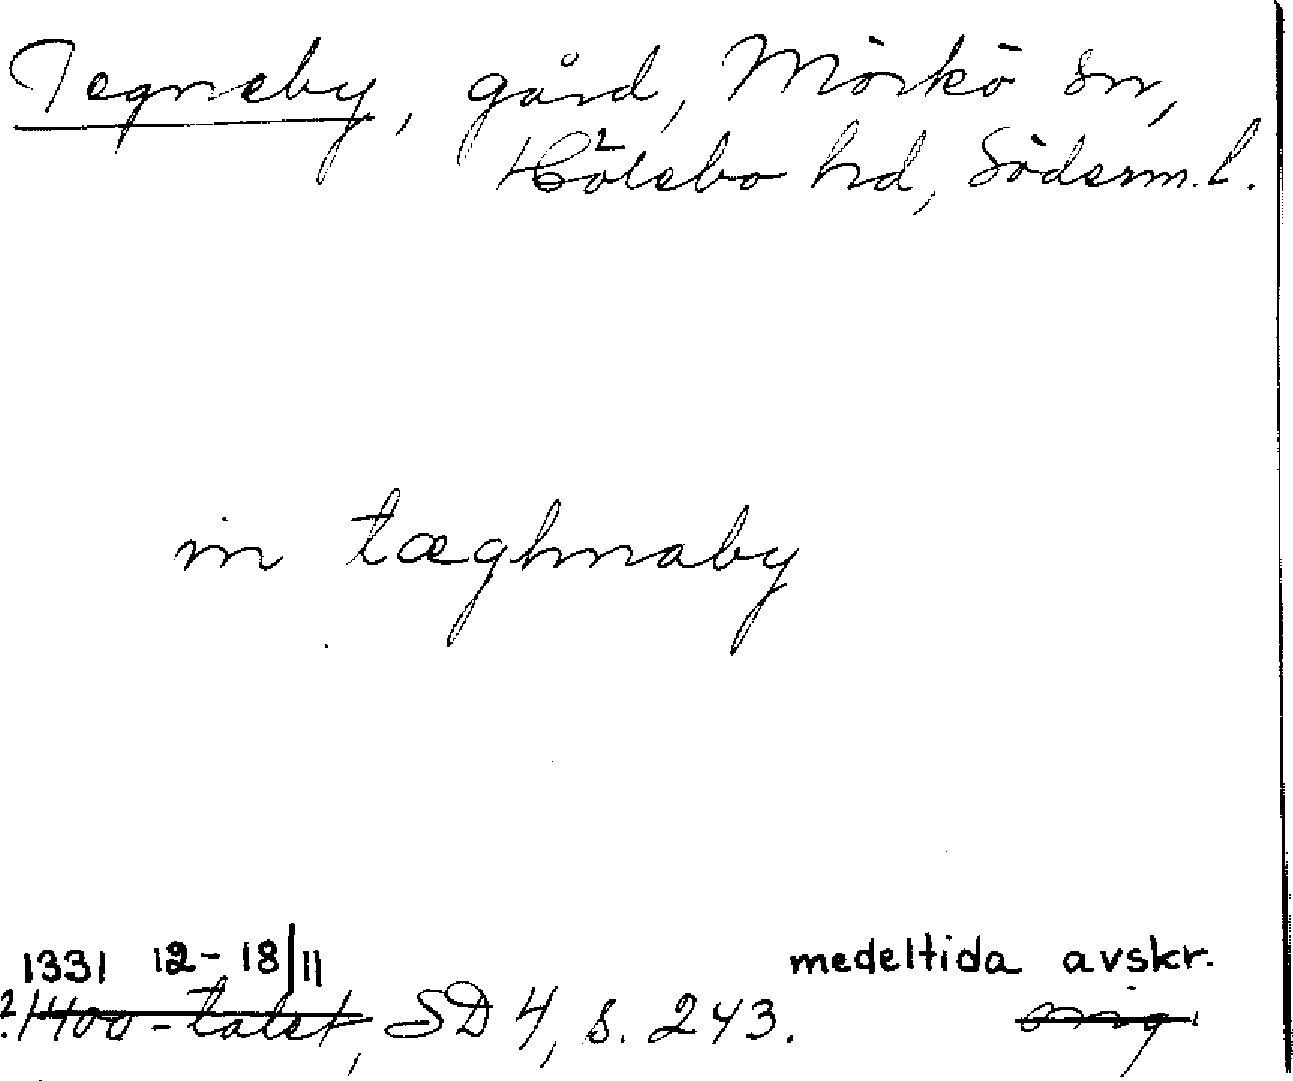 Tegneby, gård, Mörkö sn,
Hölebo hd, Söderm. l.
in tæghnaby
1331 12-18/11 medeltida avskr.
? 1400-talet, SD 4, s. 243. orig.